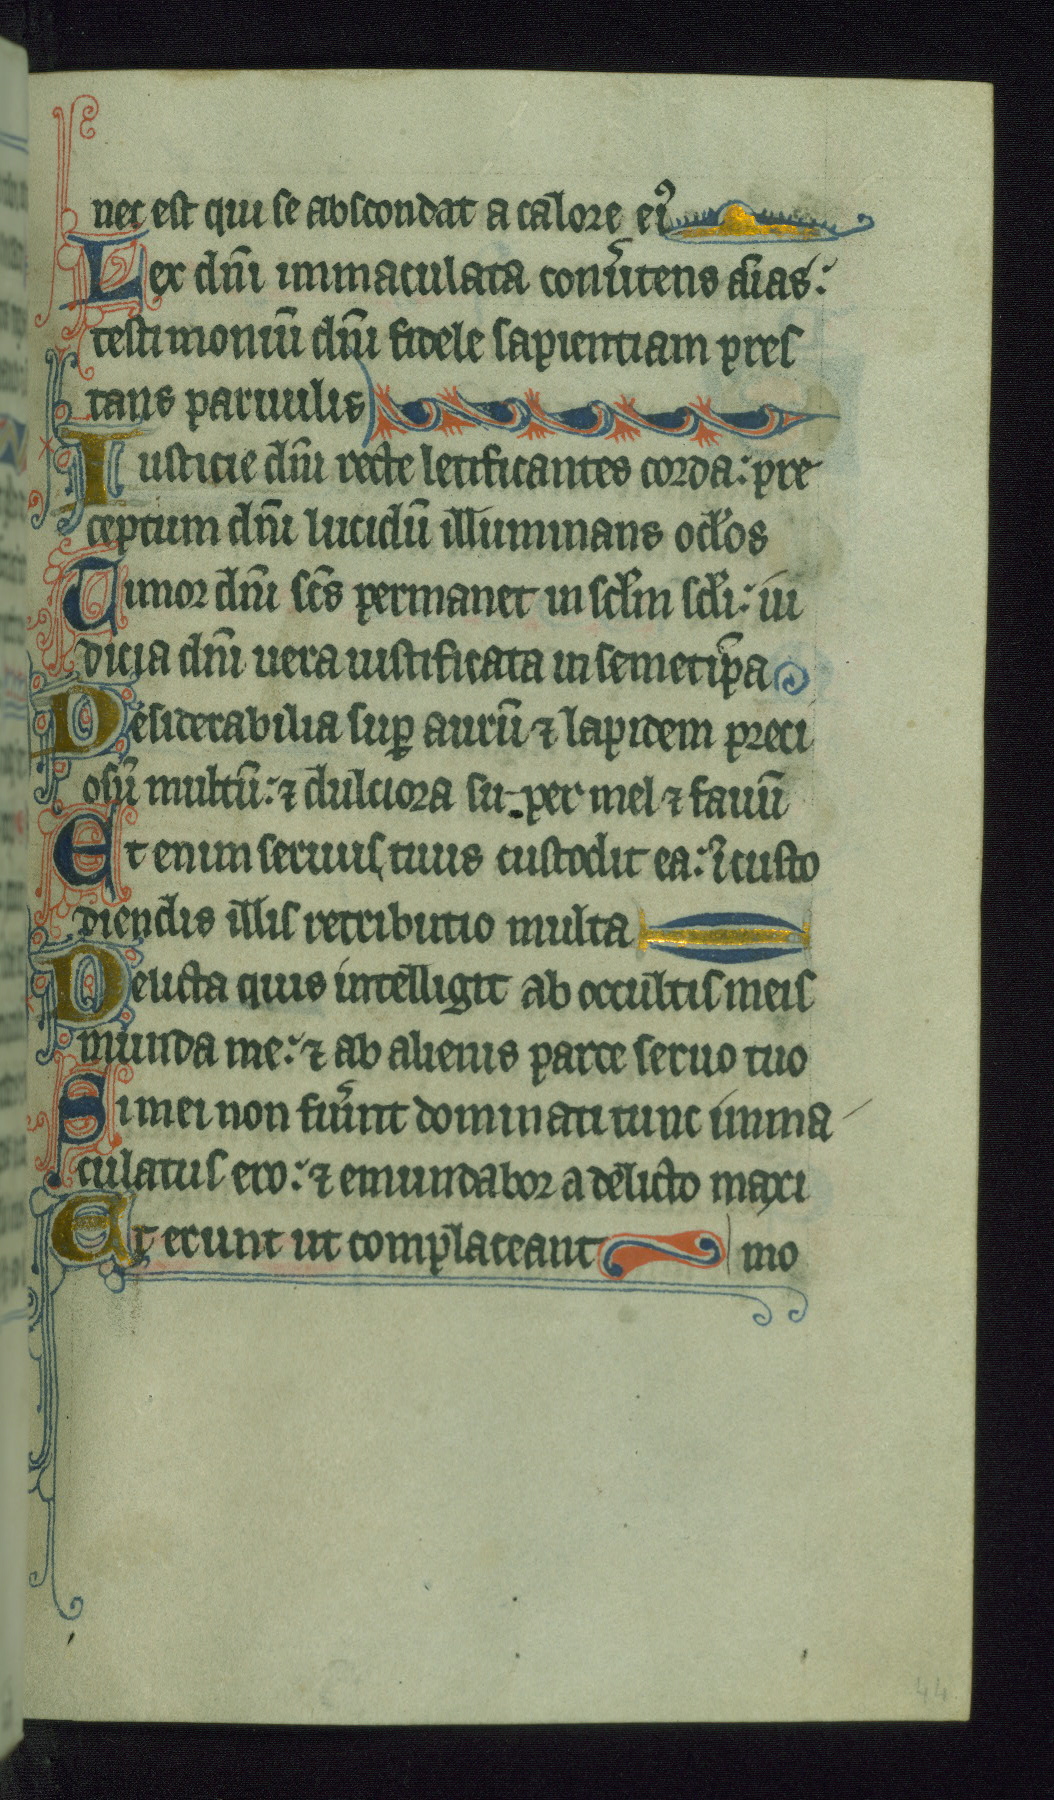 nec est qui se abscondat a calore ei᾿
Lex dn̄i immaculata conu̾tens aīas:
testimoniū dn̄i fidele sapientiam pres
tans paruulis
Iusticie dn̄i recte letificantes corda: pre
ceptum dn̄i lucidū illuminans oclos
Timor dn̄i sc̄s permanet in sclm scli: iu
dicia dn̄i uera iustificata in semetip̄a
Desiderabilia suꝑ aurū ⁊ lapidem preci
osū multū: ⁊ dulciora su-per mel ⁊ fauū
Et enim seruus tuus custodit ea: ī custo
diendis illis retributio multa
Delicta quis intelligit ab occultis meis
munda me: ⁊ ab alienis parce seruo tuo
Si mei non fu̾int dominati tunc imma
culatus ero: ⁊ emundabor a delicto maxi
Et erunt ut complaceant mo
44